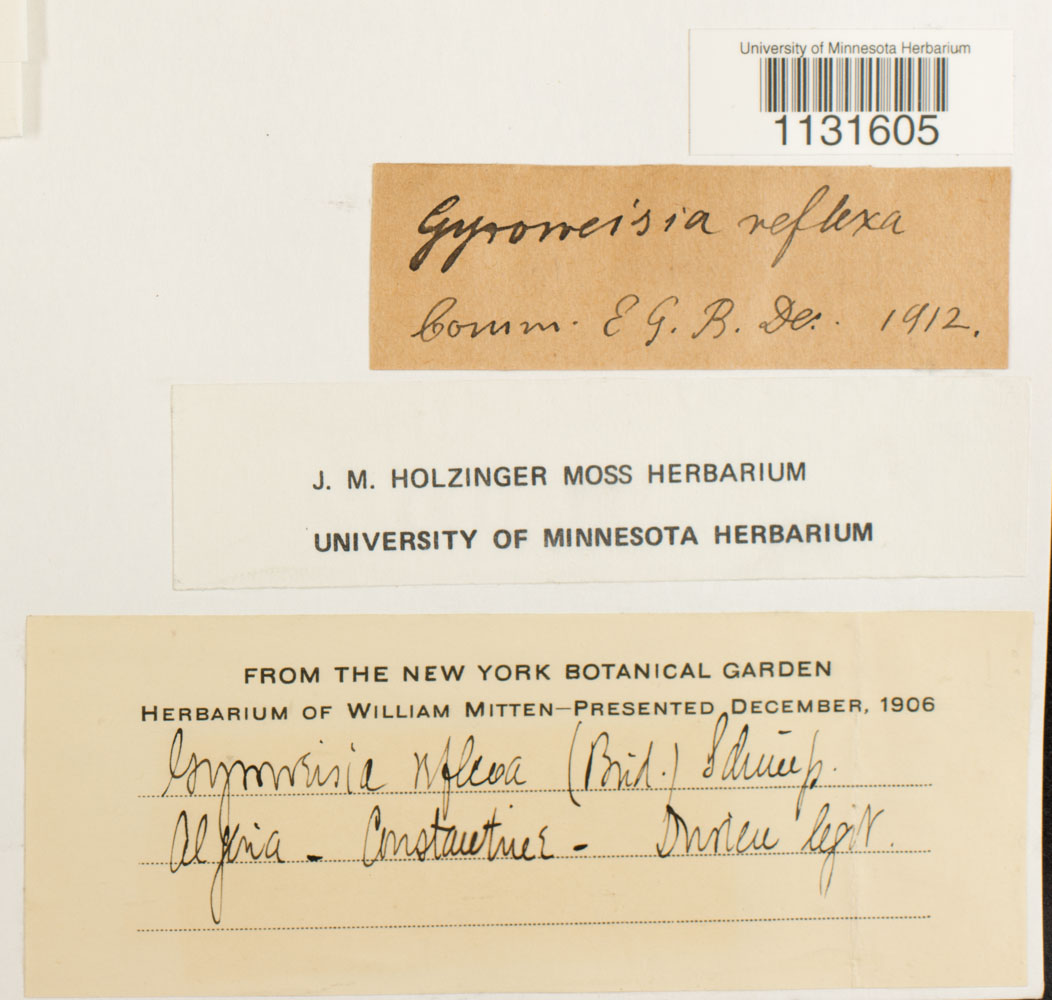 University of Minnesota Herbarium
1131605
Gyroweisia reflexa
Comm. E. G. B. Dec. 1912.
J. M. HOLZINGER MOSS HERBARIUM
UNIVERSITY OF MINNESOTA HERBARIUM
FROM THE NEW YORK BOTANICAL GARDEN
HERBARIUM OF WILLIAM MITTEN—PRESENTED DECEMBER, 1906
Gyroweisia reflexa (Brid.) Schimp.
Algeria - Constantine - Durieu legit.